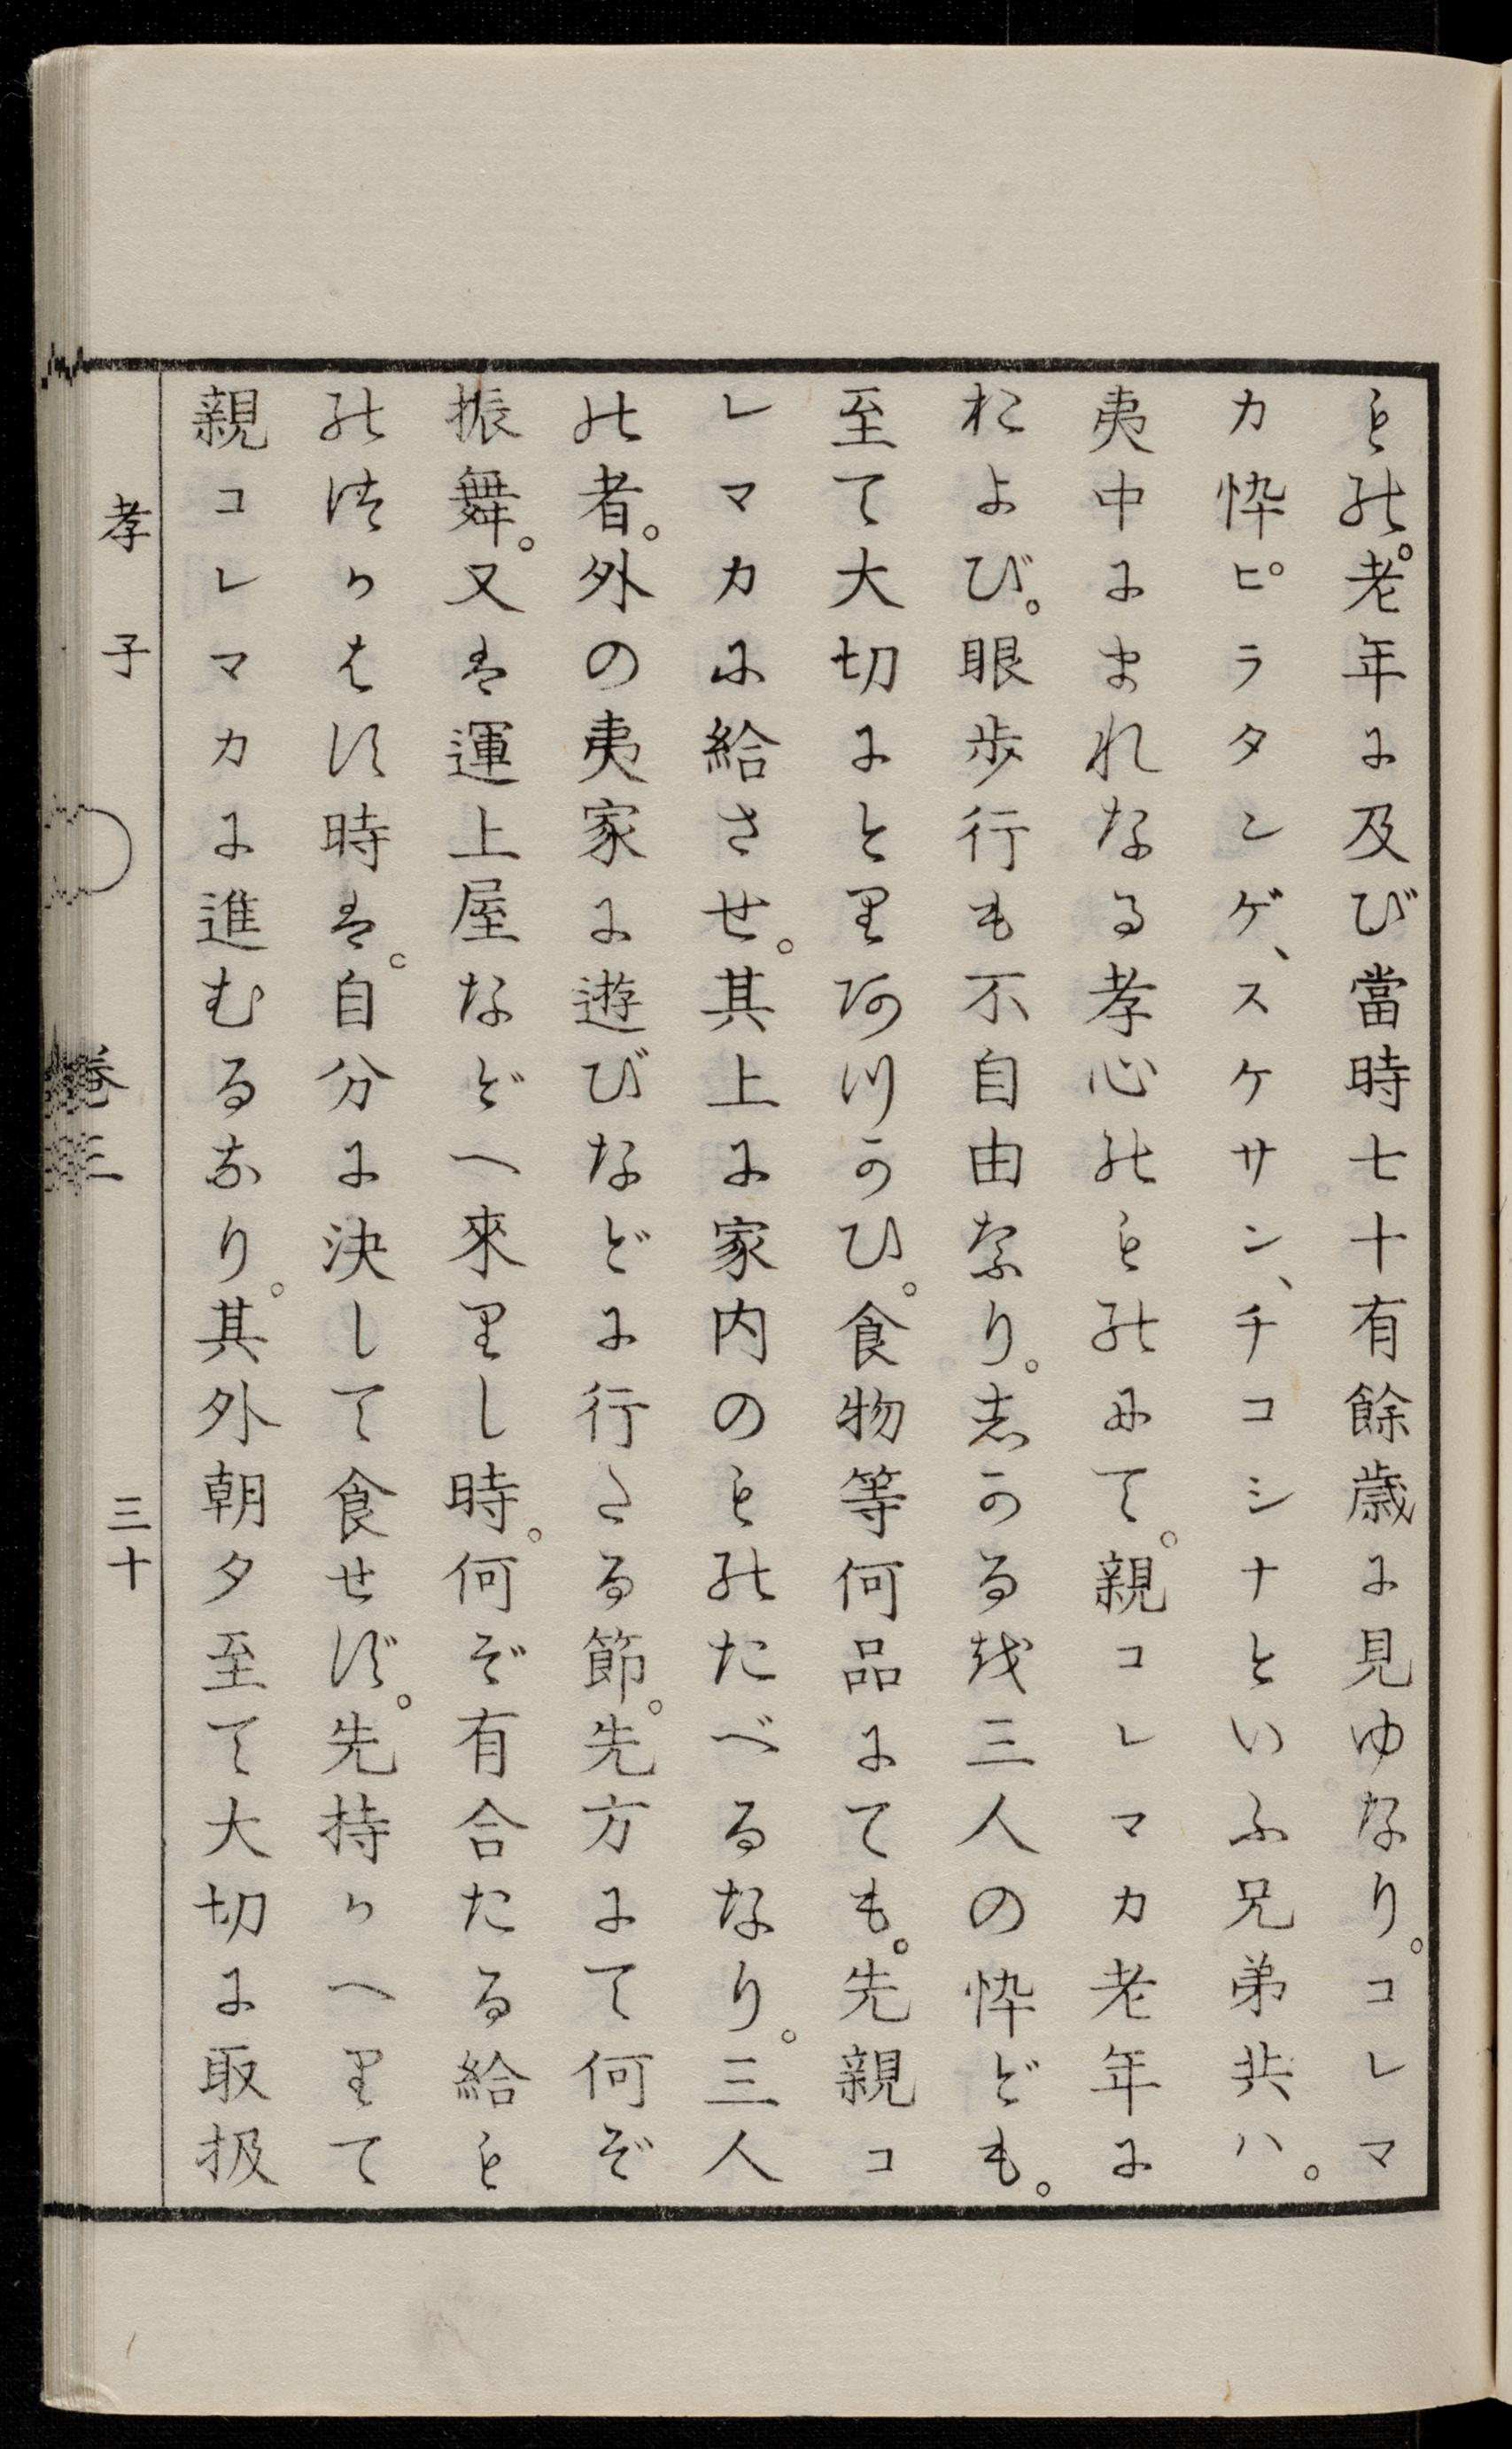 もの。老年に及び當時七十有餘歳に見ゆなり。コレマ
カ忰ピラタンゲ、スケサン、チコシナといふ兄弟共ハ。
夷中にまれなる孝心のものにて。親コレマカ老年に
および。眼歩行も不自由なり。志かるを三人の忰ども。
至て大切にとりあつかひ。食物等何品にても。先親コ
レマカに給させ。其上に家内のものたべるなり。三人
の者。外の夷家に遊びなどに行たる節。先方にて何ぞ
振舞。又は運上屋などへ來りし時。何ぞ有合たる給も
のつかはす時は。自分に決して食せず。先持かへりて
親コレマカに進むるなり。其外朝夕至て大切に取扱
孝子
巻三
三十